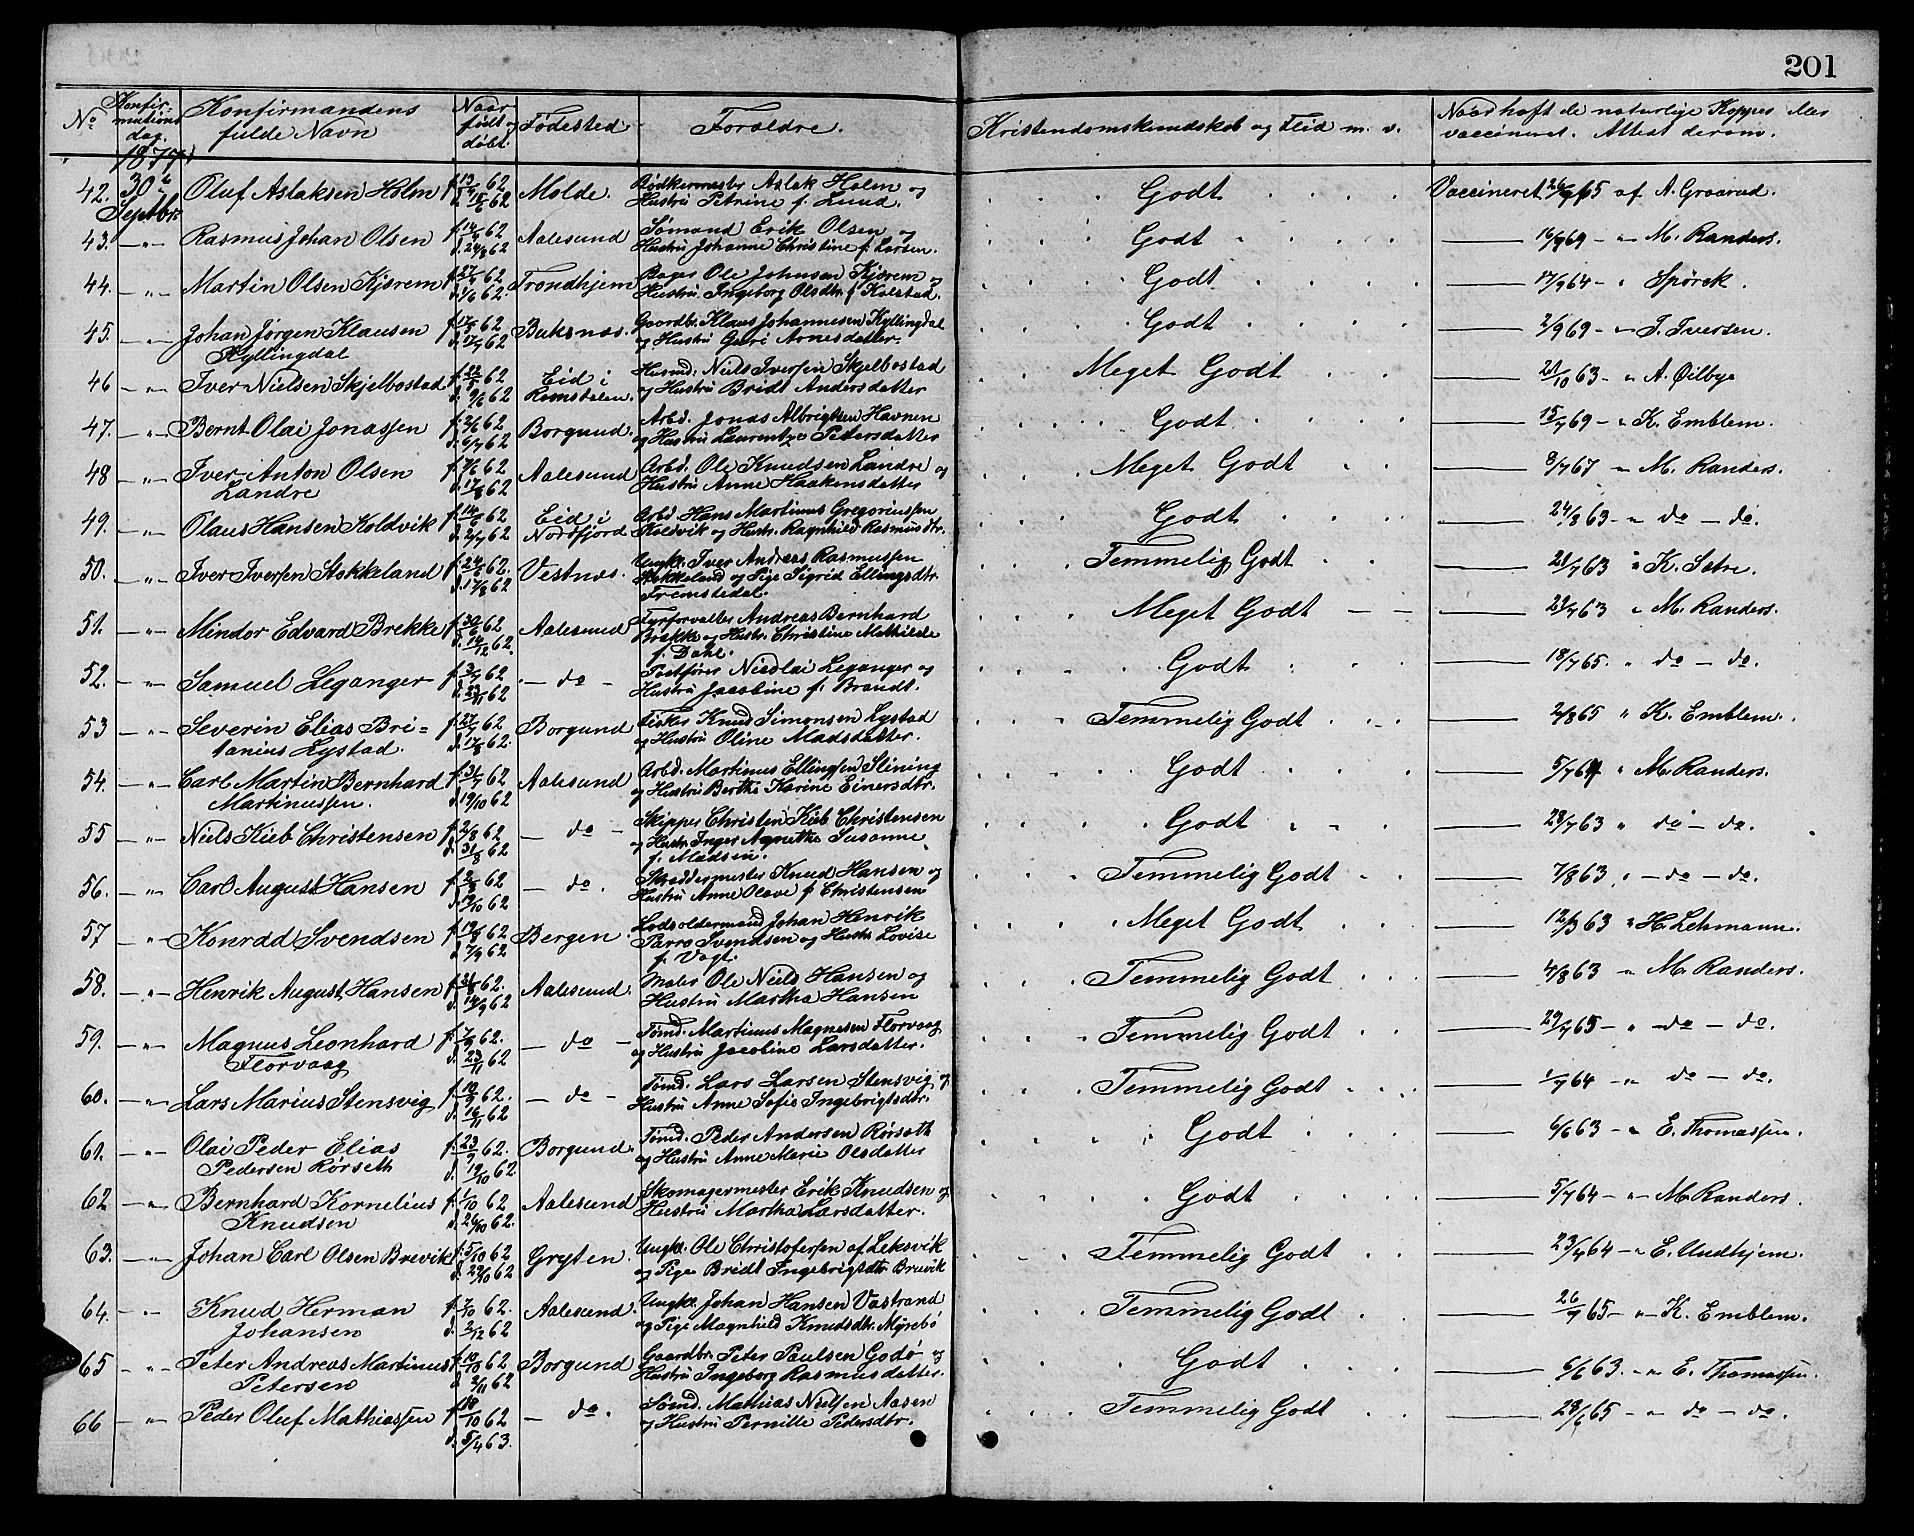 201
No Konfirmations dag. Konfirmandens fulde Navn Naar født og døbt. Fødested Forældre. Kristendomskundskab og Flid m. v. Naar haft de naturlige Kopper eller vaccineret. Attest derom.
1877
42. 30te Septbr. Oluf Aslaksen Holm f. 13/5 62 d. 15/6 62 Molde. Bødkermester Aslak Holm og Hustru Petrine f. Lund. Godt Vaccineret 26/9 65 af A. Graarud.
43. -"- Rasmus Johan Olsen d. 24/8 62 Aalesund Sømand Erik Olsen og Hustru Johanne Christine f. Larsen. Godt 16/9 69 - " M. Randers.
44. -"- Martin Olsen Kjørem d. 1/6 62. Trondhjem Bager Ole Johnsen Kjørem og Hustru Ingeborg Olsdtr. f. Kolstad. Godt 17/9 64 - " Spørck.
45. -"- Johan Jørgen Klausen Kyllingdal f. 17/5 62 d. 17/7 62 Buksnæs. Gaardbr. Klaus Johannesen Kyllingdal og Hustru Guri Arnesdatter. Godt 2/9 69 - " J. Iversen.
46 -"- Iver Nielsen Skjelbostad f. 22/5 62 d. 9/6 62 Eid i Romsdalen. Husmd. Niels Iversen Skjelbostad og Hustru Bridt Andersdatter Meget Godt 21/10 63 - " A. Øilbye
47. -"- Bernt Olai Jonassen f. 2/6 62 d. 6/7 62 Borgund. Arbd. Jonas Albrigtsen Havnen og Hustru Laurentze Petersdatter Godt 15/7 69 - " K. Emblem.
48 -"- Iver Anton Olsen Landre f. 9/6 62 d. 17/8 62 Aalesund Arbd. Ole Knudsen Landre og Hustru Anne Haakensdatter Meget Godt 8/7 67 - M. Randers.
49. -"- Olaus Hansen Koldvik f. 14/6 62 d. 2/7 62 Eid i Nordfjord Arbd Hans Martinus Gregoriussen Koldvik og Hustr. Ragnhild Rasmusdtr. Godt 24/8 63 - " do - do.
50. -"- Iver Iversen Stokkeland f. 24/6 62. d. 17/8 62 Vestnæs. Ungk. Iver Andreas Rasmussen Stokkeland og Pige Sigrid Ellingsdtr. Fremstedal. Temmelig Godt 21/7 63 " K. Sætre.
51. -"- Mindor Edvard Brekke f. 30/6 62 d. 14/12 62. Aalesund Fyrforvalter Andreas Bernhard Brekke og Hustr. Christine Mathilde f. Dahl. Meget Godt 29/7 63 " M. Randers.
52. -"- Samuel Leganger f. 3/7 62 d. 23/11 62 - do - Postfører Nicolai Leganger og Hustru Jacobine f. Brandt. Godt 18/7 65. " do - do.
53 -"- Severin Elias Britanius Lystad. f. 27/7 62 d. 17/8 62. Borgund Fisker Knud Simonsen Lystad og Hustru Oline Madsdatter. Temmelig Godt 2/8 65 " K. Emblem.
54. -"- Carl Martin Bernhard Martinussen. f. 31/7 62 d. 19/10 62 Aalesund Arbd. Martinus Ellingsen Slining og Hustru Berthe Karine Einersdtr. Godt 5/7 64 " M. Randers.
55 -"- Niels Kieb Christensen f. 2/8 62 d. 31/8 62 - do - Skipper Christen Kieb Christensen og Hustr. Inger Agnethe Susanne f. Madsen. Godt 28/7 63 " do - do.
56. -"- Carl August Hansen f. 2/8 62 d. 19/10 62 - do. Skreddermester Knud Hansen og Hustru Anne Olave f. Christensen Temmelig Godt 7/8 63 " - do - do.
57 -"- Konrad Svendsen f. 19/8 62 d. 7/9 62 Bergen. Lodsoldermand Johan Henrik Parro Svendsen og Hustr. Lovise f. Vogt. Meget Godt 12/3 63 " H. Lehmann.
58. -"- Henrik August Hansen f. 31/8 62. d. 14/9 62 Aalesund. Maler Ole Niels Hansen og Hustru Martha Hansen Temmelig Godt 4/8 63 " M. Randers.
59. -"- Magnus Leonhard Florvaag f. 7/9 62. d. 23/11 62 - do - Tømd. Martinus Magnesen Florvaag og Hustru Jacobine Larsdatter. Temmelig Godt 29/7 65 - " - do - do.
60. -"- Lars Marius Stensvig f. 10/9 62. d. 16/11 62 - do - Tømd. Lars Larsen Stensvig og Hustru Anne Sofie Ingebrigtsdtr. Temmelig Godt 1/7 64 - " do - do.
61. -"- Olai Peder Elias Pedersen Rørseth f. 23/9 62. d. 19/10 62. Borgund. Tømd. Peder Andersen Rørseth og Hustru Anne Marie Olsdatter Godt 6/6 63 - " E. Thomassen.
62 -"- Bernhard Kornelius Knudsen f. 1/10 62 d. 26/10 62. Aalesund Skomagermester Erik Knudsen og Hustru Martha Larsdatter. Godt 5/7 64 - " M. Randers.
63. -"- Johan Carl Olsen Brevik f. 5/10 62 d. 29/10 62 Gryten. Ungk. Ole Christofersen af Leksvik og Pige Bridt Ingebrigtsdtr. Brevik Temmelig Godt 23/7 64 - " E. Undhjem.
64. -"- Knud Herman Johansen f. 7/10 62. d. 2/12 62 Aalesund. Ungk. Johan Hansen Vastrand og Pige Magnhild Knudsdtr. Myrebø Temmelig Godt 26/7 65 - " K. Emblem.
65 -"- Peter Andreas Martinus Petersen f. 10/10 62 d. 2/11 62 Borgund Gaardbr. Peter Paulsen Godø og Hustru Ingeborg Rasmusdatter. Godt 6/6 63. - " E. Thomassen.
66 -"- Peder Oluf Mathiassen f. 18/10 62 d. 5/4 63. - do. Sømd. Mathias Nielsen Aasen og Hustru Pernille Pedersdtr. Temmelig Godt 23/6 65 - " - do - do.